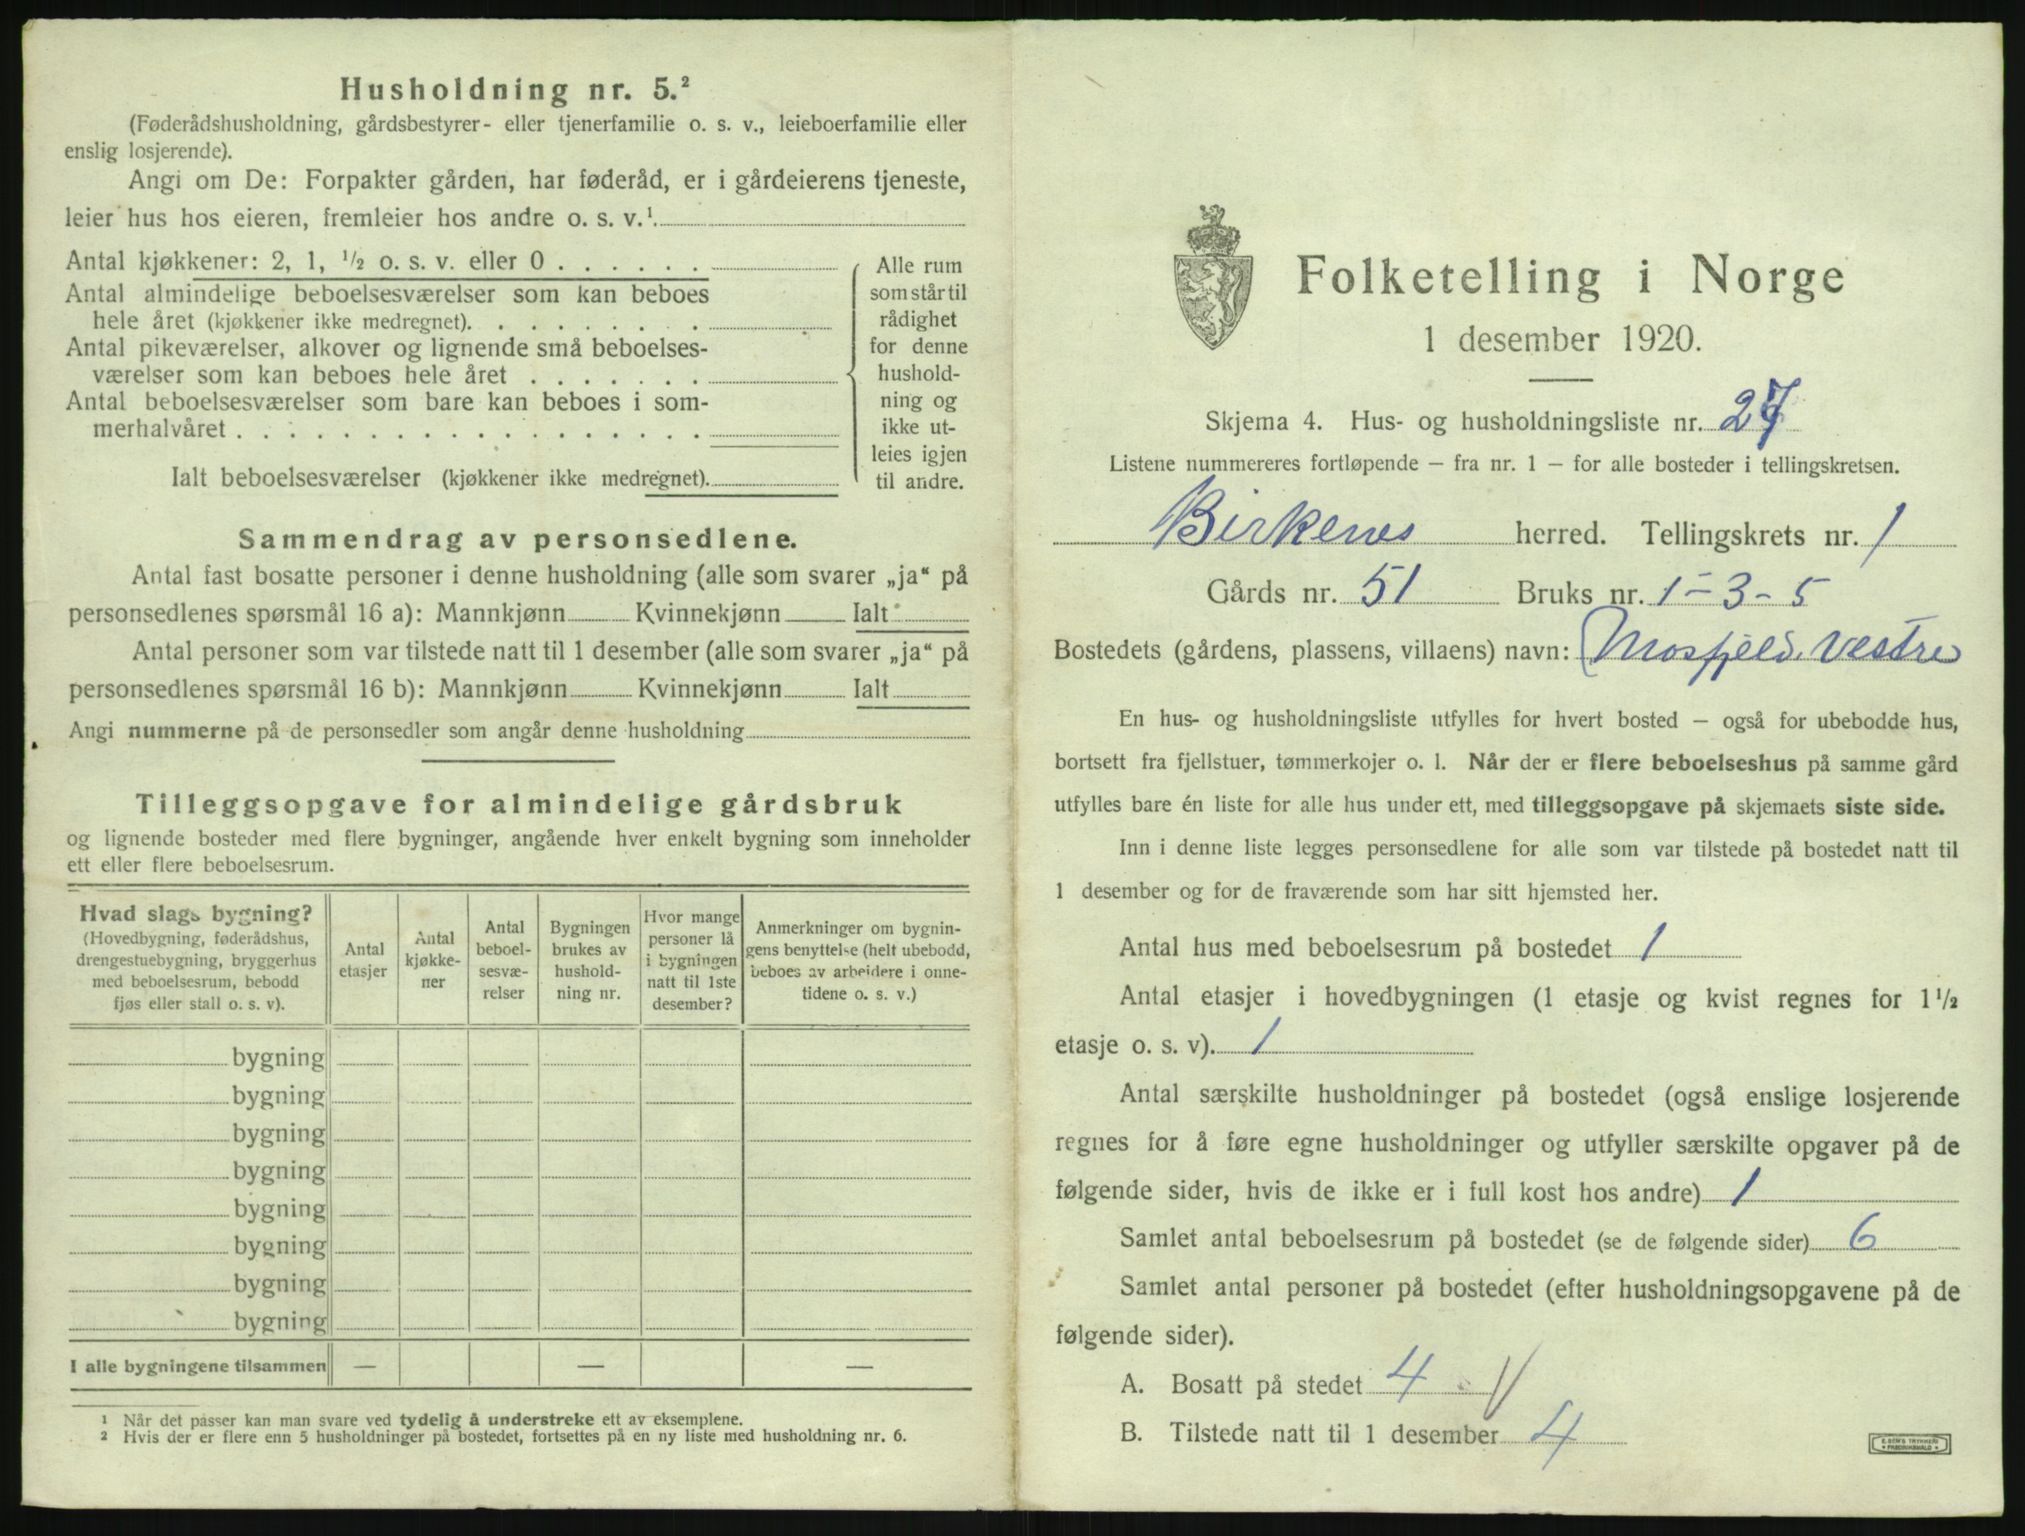 Husholdning nr. 5.²
(Føderådshusholdning, gårdsbestyrer- eller tjenerfamilie o. s. v., leieboerfamilie eller
enslig losjerende).
Angi om De: Forpakter gården, har føderåd, er i gårdeierens tjeneste,
leier hus hos eieren, fremleier hos andre o. s. v.¹
Antal kjøkkener: 2, 1, ½ o. s. v. eller 0 . . . . . .
Antal almindelige beboelsesværelser som kan beboes
hele året (kjøkkener ikke medregnet). . . . . . . . .
Antal pikeværelser, alkover og lignende små beboelses-
værelser som kan beboes hele året . . . . . . .
Antal beboelsesværelser som bare kan beboes i som-
merhalvåret . . . . . . . . . . . . . . . . . .
Ialt beboelsesværelser (kjøkkener ikke medregnet).
Alle rum
som står til
rådighet
for denne
hushold-
ning og
ikke ut-
leies igjen
til andre.
Sammendrag av personsedlene.
Antal fast bosatte personer i denne husholdning (alle som svarer „ja“ på
personsedlenes spørsmål 16 a): Mannkjønn Kvinnekjønn Ialt
Antal personer som var tilstede natt til 1 desember (alle som svarer „ja“ på
personsedlenes spørsmål 16 b): Mannkjønn Kvinnekjønn Ialt
Angi nummerne på de personsedler som angår denne husholdning
Tilleggsopgave for almindelige gårdsbruk
og lignende bosteder med flere bygninger, angående hver enkelt bygning som inneholder
ett eller flere beboelsesrum.
Hvad slags bygning?
(Hovedbygning, føderådshus,
drengestuebygning, bryggerhus
med beboelsesrum, bebodd
fjøs eller stall o. s. v).
Antal
etasjer
Antal
kjøkke-
ner
Antal
beboel-
sesvæ-
relser
Bygningen
brukes av
hushold-
ning nr.
Hvor mange
personer lå
i bygningen
natt til 1ste
desember?
Anmerkninger om bygnin-
gens benyttelse (helt ubebodd,
beboes av arbeidere i onne-
tidene o. s. v.)
bygning
bygning
bygning
bygning
bygning
bygning
bygning
bygning
I alle bygningene tilsammen — — —
¹ Når det passer kan man svare ved tydelig å understreke ett av eksemplene.
² Hvis der er flere enn 5 husholdninger på bostedet, fortsettes på en ny liste med husholdning nr. 6.
Folketelling i Norge
1 desember 1920.
Skjema 4. Hus- og husholdningsliste nr. 27
Listene nummereres fortløpende — fra nr. 1 — for alle bosteder i tellingskretsen.
Birkenes herred. Tellingskrets nr. 1
Gårds nr. 51 Bruks nr. 1-3-5
Bostedets (gårdens, plassens, villaens) navn: Mosfjeld. Vestre
En hus- og husholdningsliste utfylles for hvert bosted — også for ubebodde hus,
bortsett fra fjellstuer, tømmerkojer o. l. Når der er flere beboelseshus på samme gård
utfylles bare én liste for alle hus under ett, med tilleggsopgave på skjemaets siste side.
Inn i denne liste legges personsedlene for alle som var tilstede på bostedet natt til
1 desember og for de fraværende som har sitt hjemsted her.
Antal hus med beboelsesrum på bostedet 1
Antal etasjer i hovedbygningen (1 etasje og kvist regnes for 1½
etasje o. s. v). 1
Antal særskilte husholdninger på bostedet (også enslige losjerende
regnes for å føre egne husholdninger og utfyller særskilte opgaver på de
følgende sider, hvis de ikke er i full kost hos andre) 1
Samlet antal beboelsesrum på bostedet (se de følgende sider) 6
Samlet antal personer på bostedet (efter husholdningsopgavene på de
følgende sider).
A. Bosatt på stedet 4
B. Tilstede natt til 1 desember 4